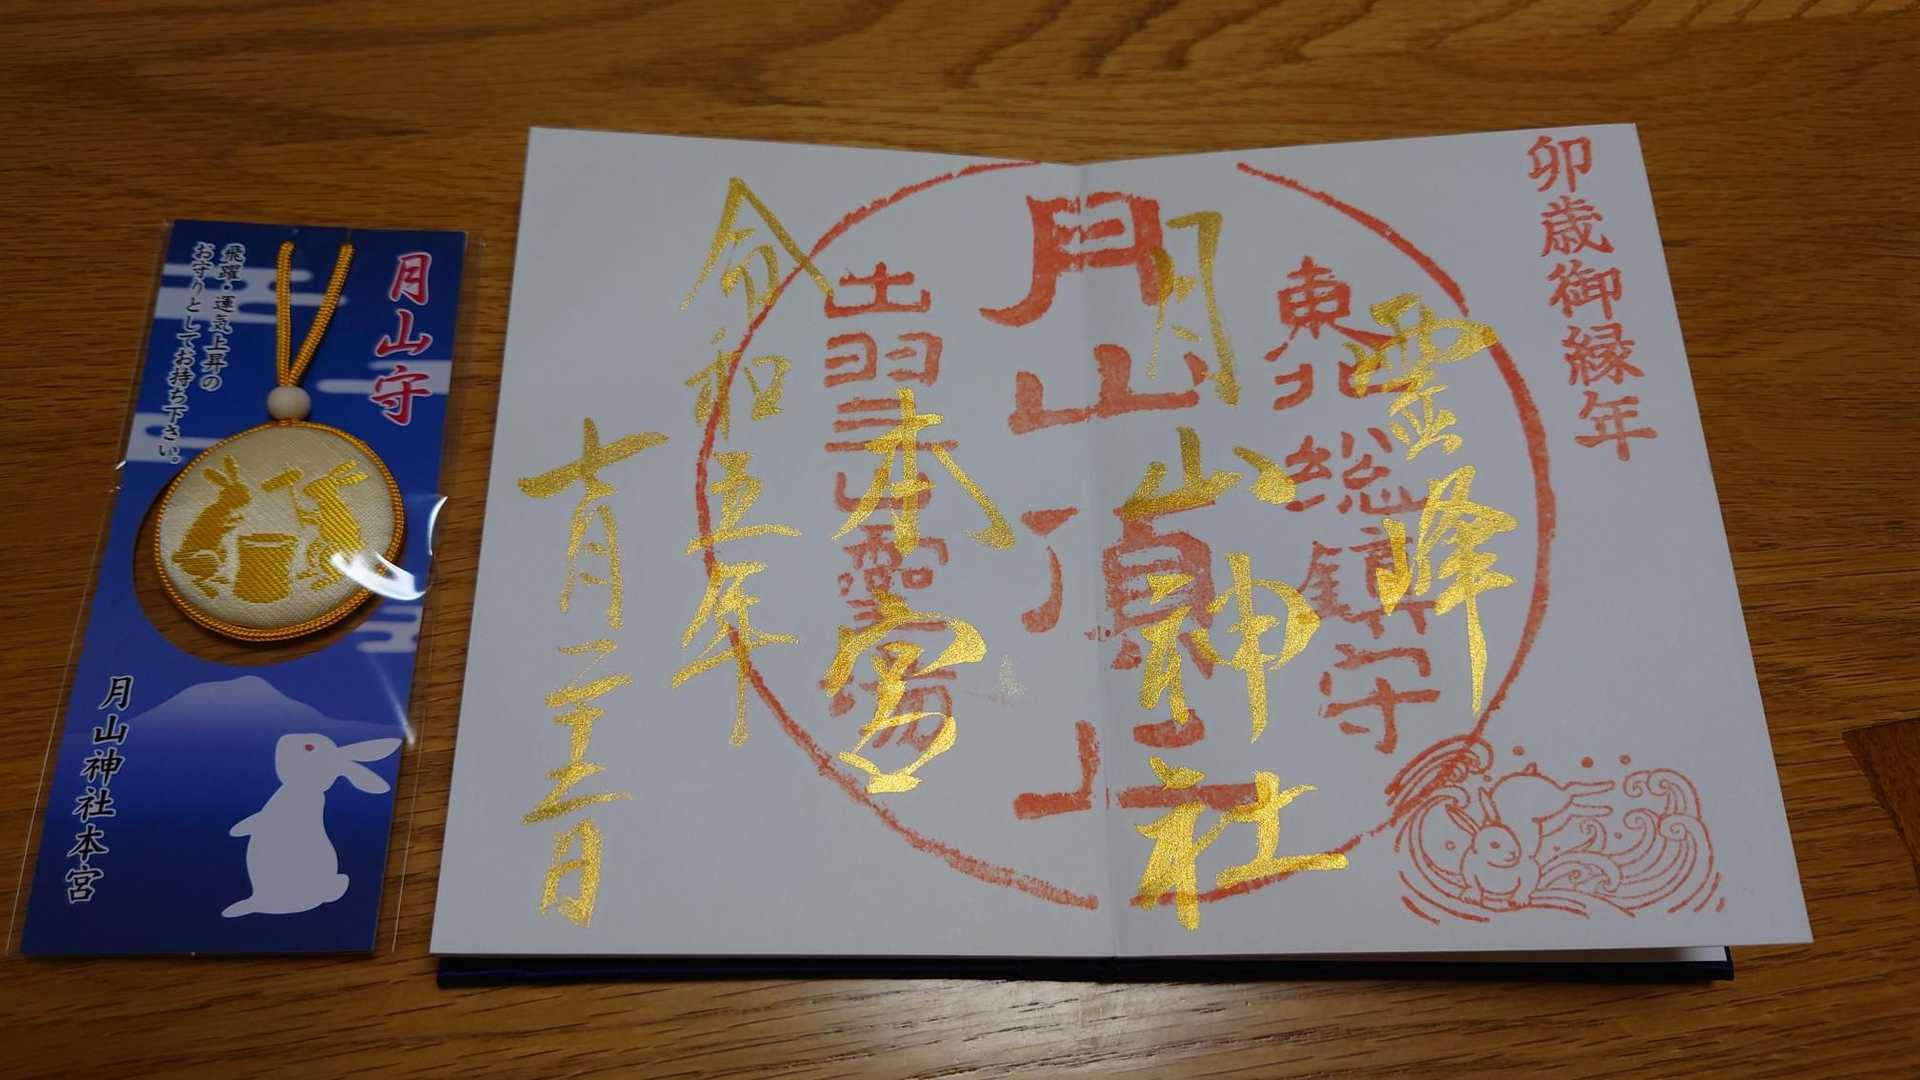 月山守
飛躍・運氣上昇の
お守りとしてお持ち下さい。
月山神社本宮
卯歳御縁年
霊峰
東北総鎮守
月山神社
月山頂上
本宮
出羽三山霊場
令和五年
七月二十二日